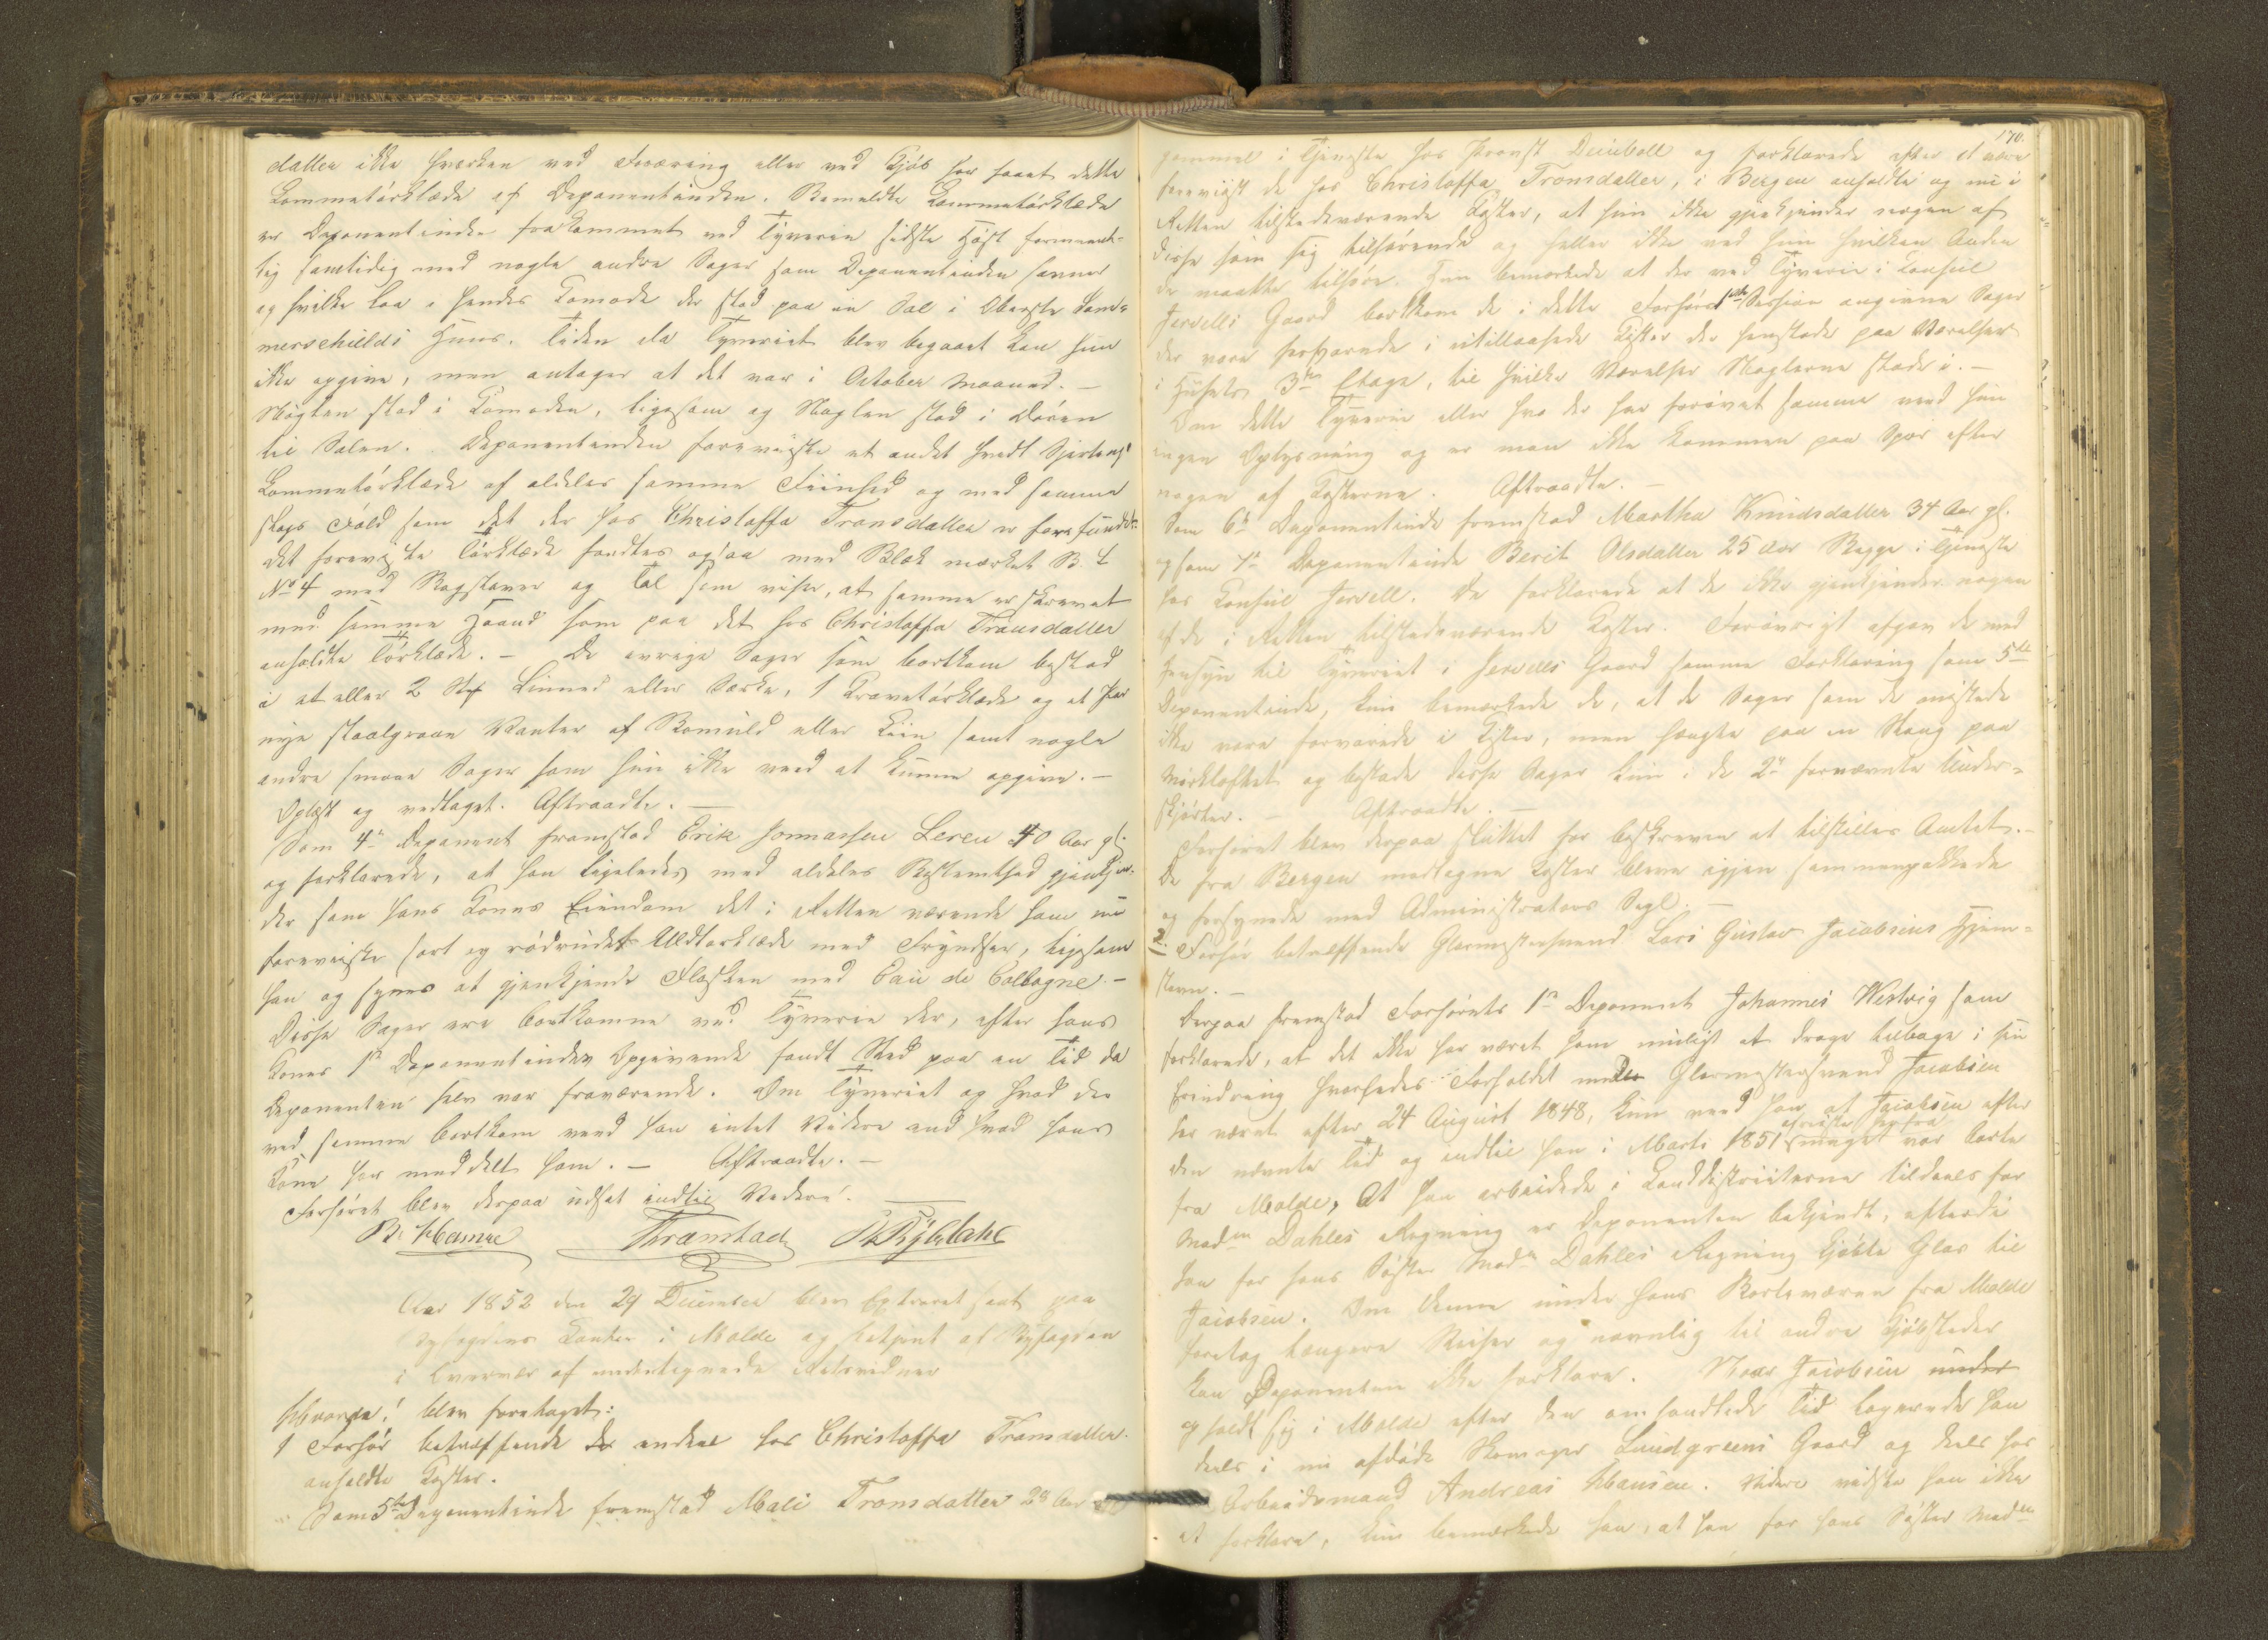 datter ikke hverken ved Foræring eller ved Kjøb har faaet dette
Lommetørklæde af Deponentinden. Bemeldte Lommetørklæde
er Deponentinden frakommet ved Tyverie sidste Høst formeent-
lig samtidig med nogle andre Sager som Deponentinden savner
og hvilke laa i hendes Comode der stod paa en Sal i Oberste Dam-
merschields Huus. Tiden da Tyveriet blev begaaet kan hun
ikke opgive, men antager at det var i October Maaned. –
Nøglen stod i Comoden, ligesom og Nøglen stod i Døren
til Salen. Deponentinden foreviiste et andet hvidt Shirtings
Lommetørklæde af aldeles samme Fiinhed og med samme
slags Fald som det der hos Christoffa Tronsdatter er forefundet.
Det foreviiste Tørklæde fandtes ogsaa med Blæk mærket B. L
No 4 med Bogstaver og Tal som viser, at samme er skrevet
med samme Haand som paa det hos Christoffa Tronsdatter
anholdte Tørklæde. – De øvrige Sager som bortkom bestod
i et eller 2 Stk Linned eller Særke, 1 Kravetørklæde og et Par
nye staalgraae Vanter af Bomuld eller Liin samt nogle
andre smaae Sager som hun ikke veed at kunne opgive. –
Oplæst og vedtaget. Aftraadte. –
Som 4de Deponent fremstod Erik Jonnassen Leren 40 Aar gl.
og forklarede, at han ligeledes med aldeles Bestemthed gjenkjen-
der som hans Kones Eiendom det i Retten værende ham nu
foreviiste sort og rødrudet Uldtørklæde med Fryndser, ligesom
han og synes at gjenkjende Flasken med Eau de Collogne –
Disse Sager ere bortkomne ved Tyverie der, efter hans
Kones 1ste Deponentindes Opgivende fandt Sted paa en Tid da
Deponenten selv var fraværende. Om Tyveriet og hvad der
ved samme bortkom veed han intet Videre end hvad hans
Kone har meddelt ham. – Aftraadte. –
Forhøret blev derpaa udsat indtil Videre.
Aar 1852 den 29 December blev Extraret sat paa
Byfogdens Contor i Molde og betjent af Byfogden
i Overvær af undertegnede Retsvidner
Hvorda! blev foretaget:
1 Forhør betræffende de endeel hos Christoffa Tronsdatter
anholdte Koster.
Som 5te Deponentinde fremstod Mali Tronsdatter 28 Aar
170.
gammel i Tjeneste hos Provst Deinboll og forklarede efter at være
foreviist de hos Christoffa Tronsdatter, i Bergen anholdte og nu i
Retten tilstedeværende Koster, at hun ikke gjenkjender nogen af
disse som sig tilhørende og heller ikke ved hun hvilken Anden
de maatte tilhøre. Hun bemærkede at der ved Tyverie i Consul
Jervells Gaard bortkom de i dette Forhørs 1ste Session angivne Sager
der vare forvarede i utillaasede Kister der henstode paa Værelser
i Husets 3die Etage, til hvilke Værelser Nøglerne stode i. –
Om dette Tyverie eller hvo der har forøvet samme veed hun
ingen Oplysning og er man ikke kommen paa Spor efter
nogen af Kosterne. Aftraadte. –
Som 6te Deponentinde fremstod Martha Knudsdatter 34 Aar gl.
og som 7de Deponentinde Berit Olsdatter 25 Aar Begge i Tjeneste
hos Consul Jervell. De forklarede at de ikke gjenkjender nogen
af de i Retten tilstedeværende Koster. Forøvrigt afgav de med
Hensyn til Tyveriet i Jervells Gaard samme Forklaring som 5te
Deponentinde, kun bemærkede de, at de Sager som de mistede
ikke vare forvarede i Kister, men hængte paa en Stang paa
Mørkloftet og bestode disse Sager kun i de 2de fornævnte Under-
skjørter. – Aftraadte. –
Forhøret blev derpaa sluttet for beskreven at tilstilles Amtet. –
De fra Bergen modtagne Koster bleve igjen sammenpakkede
og forsynede med Administrators Segl. –
2. Forhør betræffende Glarmestersvend Lars Gustav Jacobsens Hjem-
stavn. –
Derpaa fremstod Forhørets 1ste Deponent Johannes Westvig som
forklarede, at det ikke har været ham muligt at drage tilbage i sin
Erindring hvorledes Forholdet med Glarmestersvend Jacobsen
har været efter 24 August 1848, kun veed han at Jacobsen efter
den nævnte Tid og indtil han i Marts 1851 afreiste herfra meget var borte
fra Molde, At han arbeidede i Landdistricterne tildeels for
Madm Dahles Regning er Deponenten bekjendt, efterdi
han for hans Søster Madm Dahles Regning kjøbte Glas til
Jacobsen. Om denne under hans Borteværen fra Molde
foretog længere Reiser og navnlig til andre Kjøbsteder
kan Deponenten ikke forklare. Naar Jacobsen under
opholdt sig i Molde efter den omhandlede Tid logerede han
deels i nu afdøde Skomager Lundgreens Gaard og deels hos
Arbeidsmand Andreas Hansen. Videre vidste han ikke
at forklare, kun bemærkede han, at han for hans Søster Madm